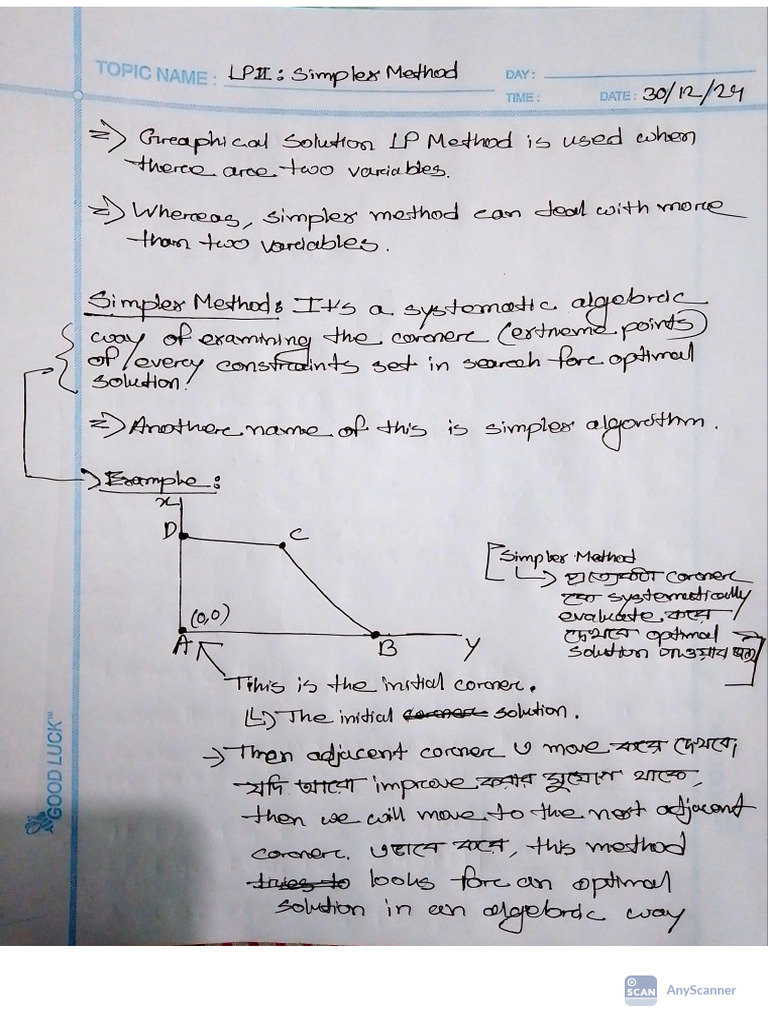 TOPIC NAME: LP II: Simplex Method
DAY:
TIME:
DATE: 30/12/24
=> Greaphical Solution LP Method is used when
there are two variables.
=> Whereas, simplex method can deal with more
than two variables.
Simplex Method: It's a systematic algebric
way of examining the corner (extreme points)
of every constraints set in search for optimal
solution.
=> Another name of this is simplex algorithm.
Example:
x
D
C
(0,0)
A
B
y
[Simplex Method
↳ প্রত্যেকটা corner
কে systemetically
evaluate করে
দেখবে optimal
solution পাওয়ার জন্য]
This is the initial corner.
↳ The initial corner solution.
→ Then adjacent corner ও move করে দেখবে,
যদি আরো improve করার সুযোগ থাকে,
then we will move to the next adjacent
corner. এভাবে করে, this method
tries to looks for an optimal
solution in an algebric way
GOOD LUCK™
SCAN
AnyScanner